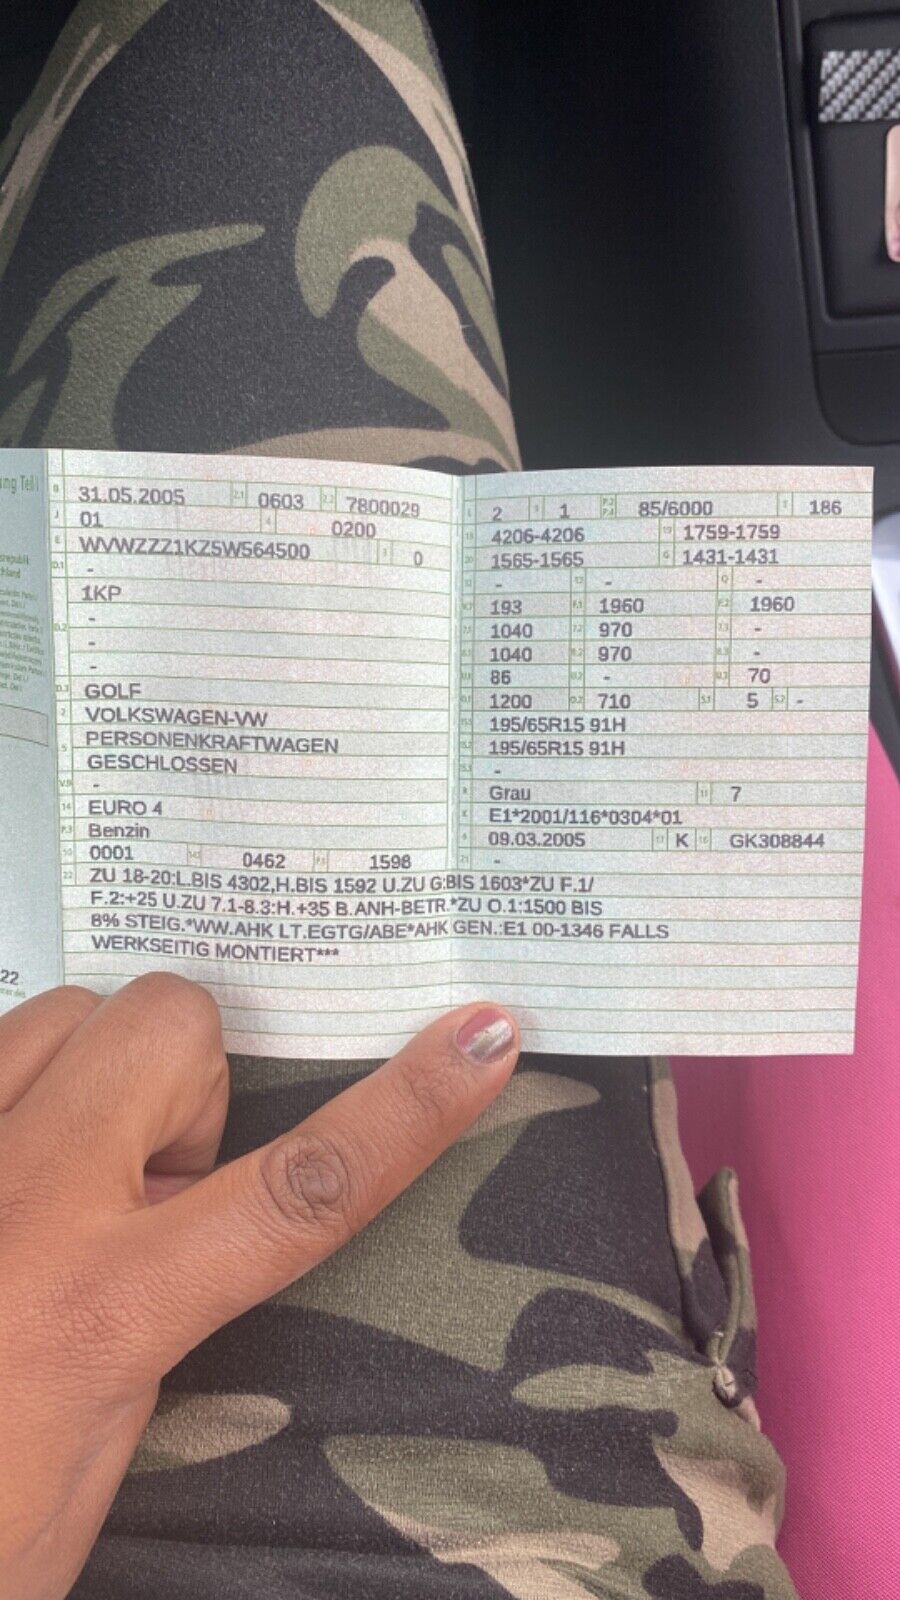 ung Teil I
B 31.05.2005 2.1 0603 2.2 7800029
J 01 4 0200
E WVWZZZ1KZ5W564500 3 0
D.1 -
1KP
-
D.2 -
-
D.3 GOLF
2 VOLKSWAGEN-VW
5 PERSONENKRAFTWAGEN
GESCHLOSSEN
V.9 -
14 EURO 4
P.3 Benzin
10 0001 14.1 0462 P.1 1598
L 2 9 1 P.2 P.4 85/6000 T 186
18 4206-4206 19 1759-1759
20 1565-1565 G 1431-1431
12 - 13 - Q -
V.7 193 F.1 1960 F.2 1960
7.1 1040 7.2 970 7.3 -
8.1 1040 8.2 970 8.3 -
U.1 86 U.2 - U.3 70
O.1 1200 O.2 710 S.1 5 S.2 -
15.1 195/65R15 91H
15.2 195/65R15 91H
15.3 -
R Grau 11 7
K E1*2001/116*0304*01
6 09.03.2005 17 K 16 GK308844
21 -
22 ZU 18-20:L.BIS 4302,H.BIS 1592 U.ZU G:BIS 1603*ZU F.1/
F.2:+25 U.ZU 7.1-8.3:H.+35 B.ANH-BETR.*ZU O.1:1500 BIS
8% STEIG.*WW.AHK LT.EGTG/ABE*AHK GEN.:E1 00-1346 FALLS
WERKSEITIG MONTIERT***
22